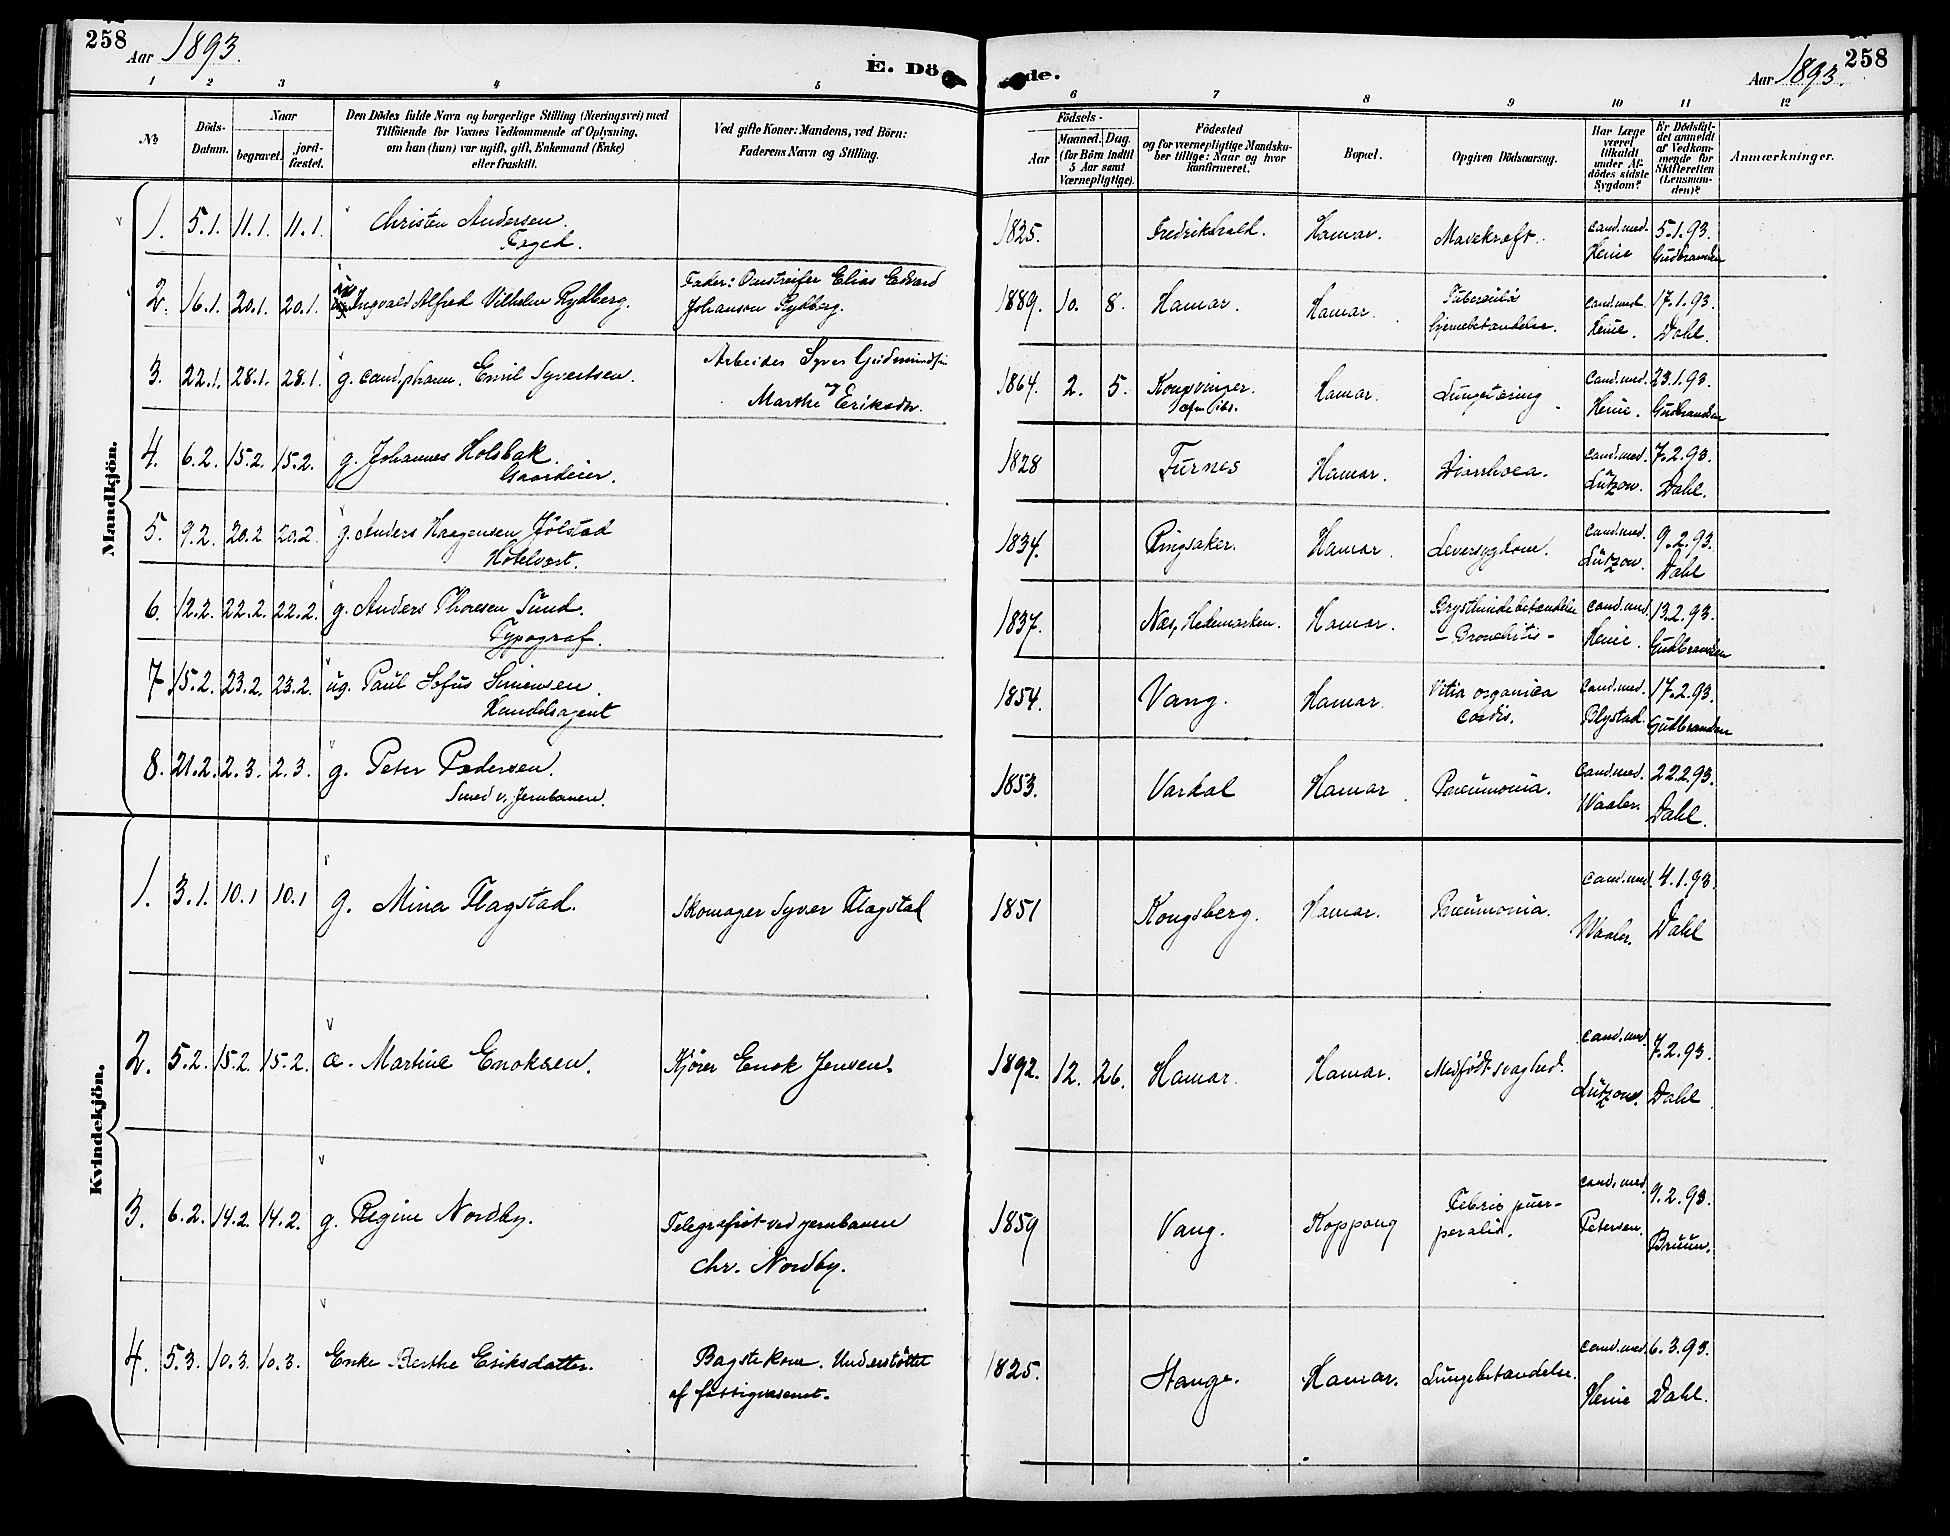 258
Aar 1893.
E. Dö
1 2 3 4 5
No
Döds-
Datum.
Naar
begravet.
jord-
fæstet.
Den Dödes fulde Navn og borgerlige Stilling (Næringsvei) med
Tilföiende for Voxnes Vedkommende af Oplysning,
om han (hun) var ugift, gift, Enkemand (Enke)
eller fraskilt.
Ved gifte Koner: Mandens, ved Börn:
Faderens Navn og Stilling.
Mandkjön.
1. 5.1. 11.1. 11.1. Christen Andersen.
2. 16.1. 20.1. 20.1. Ingvald Alfred Vilhelm Rydberg. Fader: Omstreifer Elias Edvard
Johanson Rydberg.
3. 22.1. 28.1. 28.1. g. cand. pharm. Emil Syvertsen. Arbeider Syver Gudmundsen
Marthe Eriksdr.
4. 6.2. 15.2. 15.2. g. Johannes Holsbak
Gaardeier.
5. 9.2. 20.2 20.2. g. Anders Haagensen Jölstad
Hotelvert.
6. 12.2. 22.2. 22.2. g. Anders Thoresen Sund.
Typograf.
7 15.2. 23.2. 23.2. ug. Paul Sofus Simensen.
Handelsagent
8. 21.2. 2.3. 2.3. g. Peter Pedersen.
Smed v. Jernbanen.
Kvindekjön.
1. 3.1. 10.1 10.1 g. Mina Flagstad. Skomager Syver Flagstad
2. 5.2. 15.2. 15.2. æ. Martine Enoksen. Kjörer Enok Jensen.
3. 6.2. 14.2. 14.2. g. Regine Nordby. Telegrafist ved jernbanen
Chr. Nordby.
4. 5.3. 10.3. 10.3. Enke Berthe Eriksdatter. Bagstekone. Understöttet
af fattigvæsenet.
258
Aar 1893.
de.
6 7 8 9 10 11 12
Födsels-
Aar
Maaned. Dag.
(for Börn indtil
5 Aar samt
Værnepligtige).
Födested
og for værnepligtige Mandska-
ber tillige: Naar og hvor
konfirmeret.
Bopæl.
Opgiven Dödsaarsag.
Har Læge
været
tilkaldt
under Af-
dödes sidste
Sygdom?
Er Dödsfal-
det anmeldt
af Vedkom-
mende for
Skifteretten
(Lensman-
den)?
Anmærkninger.
1825. Fredrikshald. Hamar. Mavekræft. Cand. med. 5.1.93.
Heine Gudbrandsen
1889. 10. 8. Hamar. Hamar. Tuberculös Cand. med. 17.1.93.
hjernebetændelse. Heine. Dahl.
1864. 2. 5. Kongsvinger. Hamar. Lungetæring Cand. med. 23.1.93.
Heine. Gudbrandsen
1828 Furnes Hamar. Diarrhoea. Cand. med. 7.2.93.
Lützow. Dahl.
1834. Ringsaker. Hamar. Leversygdom. Cand. med. 9.2.93.
Lützow. Dahl
1837. Næs, Hedemarken. Hamar. Brysthindebetændelse Cand. med. 13.2.93.
- Bronchitis - Heine. Gudbrandsen
1854. Vang. Hamar. Vitia organica Cand. med. 17.2.93.
cordis. Blystad. Gudbrandsen
1853. Vardal Hamar. Pneumonia. Cand. med. 22.2.93.
Waaler. Dahl.
1851 Kongsberg. Hamar. Pneumonia. Cand. med. 4.1.93.
Waaler. Dahl
1892. 12. 26. Hamar. Hamar. Medfödt svaghed. Cand. med. 7.2.93.
Lützow. Dahl
1859 Vang. Koppang Febris puer- Cand. med. 9.2.93.
peralis. Petersen. Bruun.
1825. Stange. Hamar. Lungebetændelse. Cand. med. 6.3.93.
Heine Dahl.